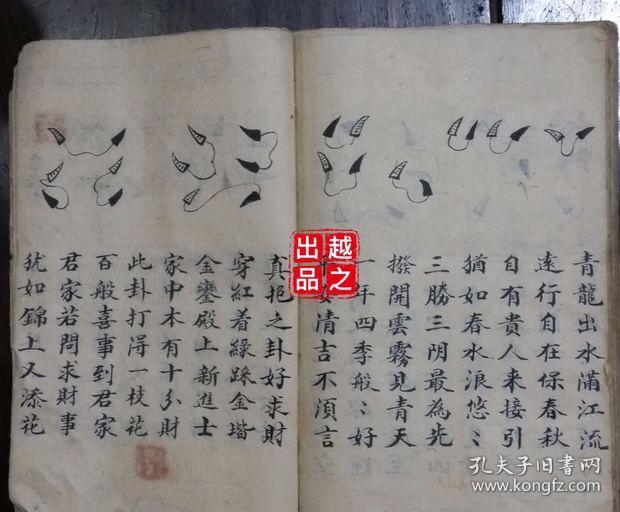 青龍出水滿江流
遠行自在保春秋
自有貴人来接引
猶如春水浪悠〻
三勝三阴最為先
撥開雲霧見青天
一年四季般〻好
清吉不須言
真抱之卦好求財
穿紅着綠踩金堦
金鑾殿上新進士
家中本有十分財
此卦打淂一枝花
百般喜事到君家
君家若問求財事
犹如錦上又添花
越之
出品
孔夫子旧书网
book.kongfz.com